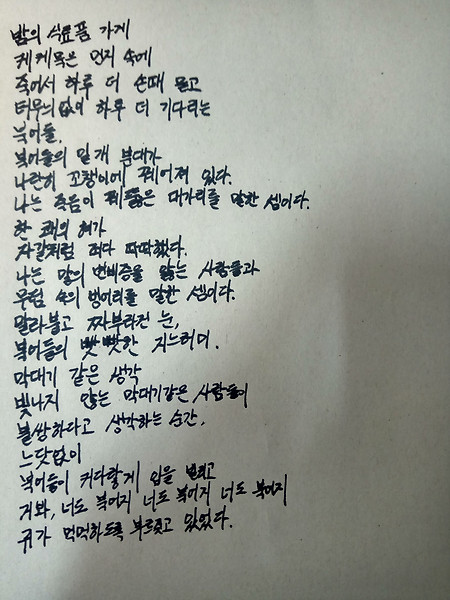 밤의 식료품 가게
케케묵은 먼지 속에
죽어서 하루 더 손때 묻고
터무니없이 하루 더 기다리는
북어들,
북어들의 일개 분대가
나란히 꼬챙이에 꿰어져 있다.
나는 죽음이 꿰뚫은 대가리를 말한 셈이다.
한 쾌의 혀가
자갈처럼 죄다 딱딱했다.
나는 말의 변비증을 앓는 사람들과
무덤 속의 벙어리를 말한 셈이다.
말라붙고 짜부라진 눈,
북어들의 빳빳한 지느러미.
막대기 같은 생각
빛나지 않는 막대기같은 사람들이
불쌍하다고 생각하는 순간,
느닷없이
북어들이 커다랗게 입을 벌리고
거봐, 너도 북어지 너도 북어지 너도 북어지
귀가 먹먹하도록 부르짖고 있었다.